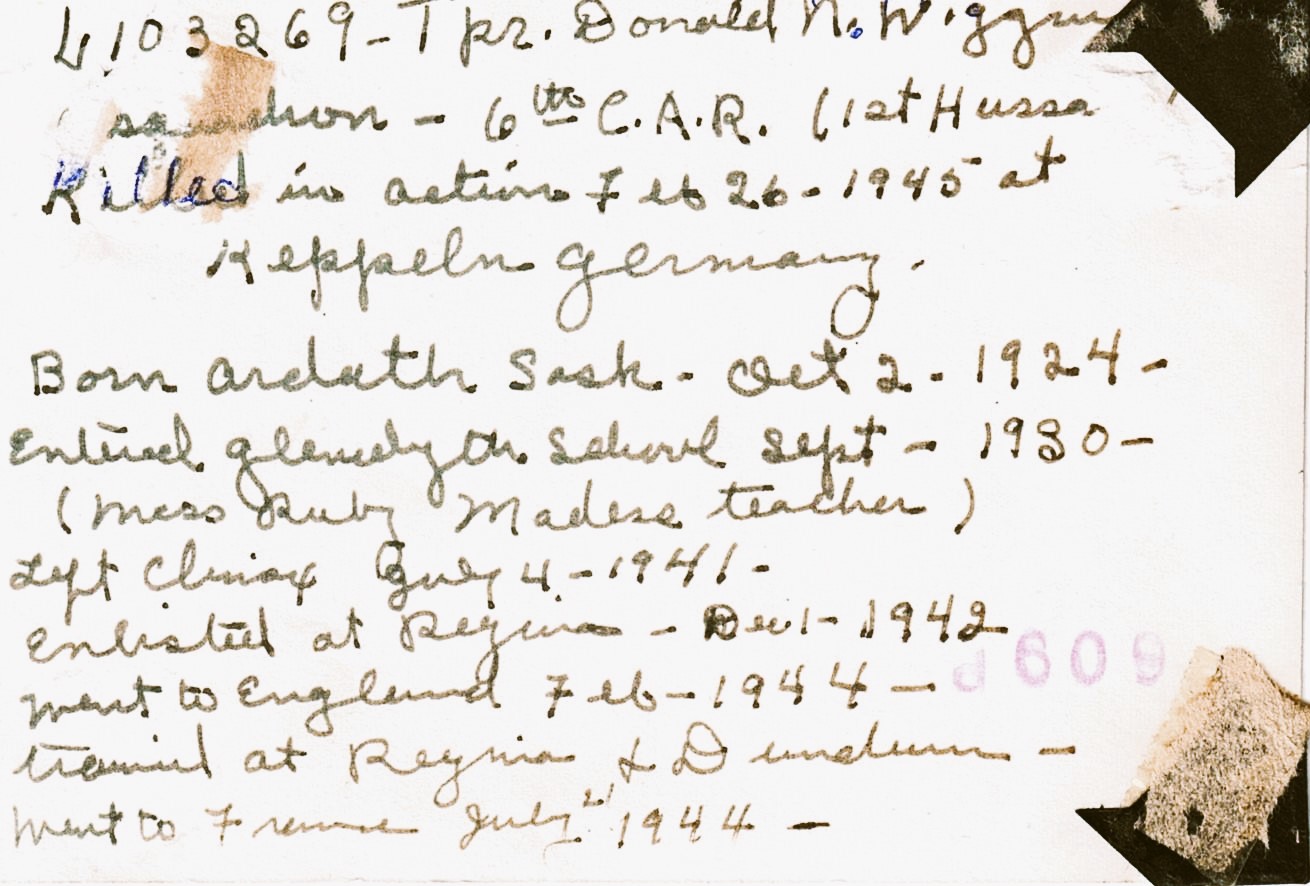 L103269 - Tpr. Donald N. Wiggin
squadron - 6th C.A.R. (1st Hussa
Killed in action Feb 26 - 1945 at
Keppeln Germany.
Born Ardath Sask - Oct 2 - 1924 -
Entered School Sept - 1930 -
(Miss Ruby teacher)
Left Climax July 4 - 1941 -
Enlisted at Regina - Dec 1 - 1942
went to England Feb - 1944 -
609
trained at Regina & Dundurn -
Went to France July 1944 -